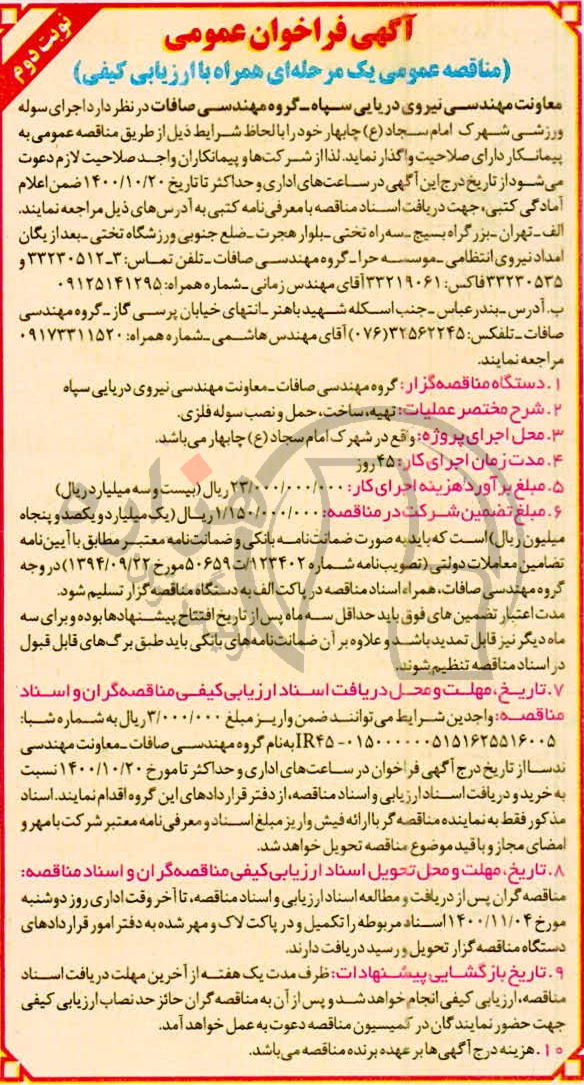 نوبت دوم
آگهی فراخوان عمومی
(مناقصه عمومی یک مرحله‌ای همراه با ارزیابی کیفی)
معاونت مهندسی نیروی دریایی سپاه ـ گروه مهندسی صافات در نظر دارد اجرای سوله
ورزشی شهرک امام سجاد (ع) چابهار خود را با لحاظ شرایط ذیل از طریق مناقصه عمومی به
پیمانکار دارای صلاحیت واگذار نماید. لذا از شرکت‌ها و پیمانکاران واجد صلاحیت لازم دعوت
می‌شود از تاریخ درج این آگهی در ساعت‌های اداری و حداکثر تا تاریخ ۱۴۰۰/۱۰/۲۰ ضمن اعلام
آمادگی کتبی، جهت دریافت اسناد مناقصه با معرفی‌نامه کتبی به آدرس‌های ذیل مراجعه نمایند.
الف ـ تهران ـ بزرگراه بسیج ـ سه‌راه تختی ـ بلوار هجرت ـ ضلع جنوبی ورزشگاه تختی ـ بعد از یگان
امداد نیروی انتظامی ـ موسسه حرا ـ گروه مهندسی صافات ـ تلفن تماس: ۳ـ۳۳۲۳۰۵۱۲ و
۳۳۲۳۰۵۳۵ فاکس: ۳۳۲۱۹۰۶۱ آقای مهندس زمانی ـ شماره همراه: ۰۹۱۲۵۱۴۱۲۹۵
ب. آدرس ـ بندرعباس ـ جنب اسکله شهید باهنر ـ انتهای خیابان پرسی گاز ـ گروه مهندسی
صافات ـ تلفکس: ۳۲۵۶۲۲۴۵(۰۷۶) آقای مهندس هاشمی ـ شماره همراه: ۰۹۱۷۳۳۱۱۵۲۰
مراجعه نمایند.
۱. دستگاه مناقصه‌گزار: گروه مهندسی صافات ـ معاونت مهندسی نیروی دریایی سپاه
۲. شرح مختصر عملیات: تهیه، ساخت، حمل و نصب سوله فلزی.
۳. محل اجرای پروژه: واقع در شهرک امام سجاد (ع) چابهار می‌باشد.
۴. مدت زمان اجرای کار: ۴۵ روز
۵. مبلغ برآورد هزینه اجرای کار: ۲۳/۰۰۰/۰۰۰/۰۰۰ ریال (بیست و سه میلیارد ریال)
۶. مبلغ تضمین شرکت در مناقصه: ۱/۱۵۰/۰۰۰/۰۰۰ ریال (یک میلیارد و یکصد و پنجاه
میلیون ریال) است که باید به صورت ضمانت‌نامه بانکی و ضمانت‌نامه معتبر مطابق با آیین‌نامه
تضامین معاملات دولتی (تصویب‌نامه شماره ۱۲۳۴۰۲/ت۵۰۶۵۹ مورخ ۱۳۹۴/۰۹/۲۲) در وجه
گروه مهندسی صافات، همراه اسناد مناقصه در پاکت الف به دستگاه مناقصه گزار تسلیم شود.
مدت اعتبار تضمین های فوق باید حداقل سه ماه پس از تاریخ افتتاح پیشنهادها بوده و برای سه
ماه دیگر نیز قابل تمدید باشد و علاوه بر آن ضمانت‌نامه‌های بانکی باید طبق برگ‌های قابل قبول
در اسناد مناقصه تنظیم شوند.
۷. تاریخ، مهلت و محل دریافت اسناد ارزیابی کیفی مناقصه‌گران و اسناد
مناقصه: واجدین شرایط می‌توانند ضمن واریز مبلغ ۳/۰۰۰/۰۰۰ ریال به شماره شبا:
IR۴۵ -۰۱۵۰۰۰۰۰۰۵۱۵۱۶۲۵۵۱۶۰۰۵ به نام گروه مهندسی صافات ـ معاونت مهندسی
ندسا از تاریخ درج آگهی فراخوان در ساعت‌های اداری و حداکثر تا مورخ ۱۴۰۰/۱۰/۲۰ نسبت
به خرید و دریافت اسناد ارزیابی و اسناد مناقصه، از دفتر قراردادهای این گروه اقدام نمایند. اسناد
مذکور فقط به نماینده مناقصه گر با ارائه فیش واریز مبلغ اسناد و معرفی‌نامه معتبر شرکت با مهر و
امضای مجاز و با قید موضوع مناقصه تحویل خواهد شد.
۸. تاریخ، مهلت و محل تحویل اسناد ارزیابی کیفی مناقصه‌گران و اسناد مناقصه:
مناقصه گران پس از دریافت و مطالعه اسناد ارزیابی و اسناد مناقصه، تا آخر وقت اداری روز دوشنبه
مورخ ۱۴۰۰/۱۱/۰۴ اسناد مربوطه را تکمیل و در پاکت لاک و مهر شده به دفتر امور قراردادهای
دستگاه مناقصه گزار تحویل و رسید دریافت دارند.
۹. تاریخ بازگشایی پیشنهادات: ظرف مدت یک هفته از آخرین مهلت دریافت اسناد
مناقصه، ارزیابی کیفی انجام خواهد شد و پس از آن به مناقصه گران حائز حد نصاب ارزیابی کیفی
جهت حضور نمایندگان در کمیسیون مناقصه دعوت به عمل خواهد آمد.
۱۰. هزینه درج آگهی‌ها بر عهده برنده مناقصه می‌باشد.